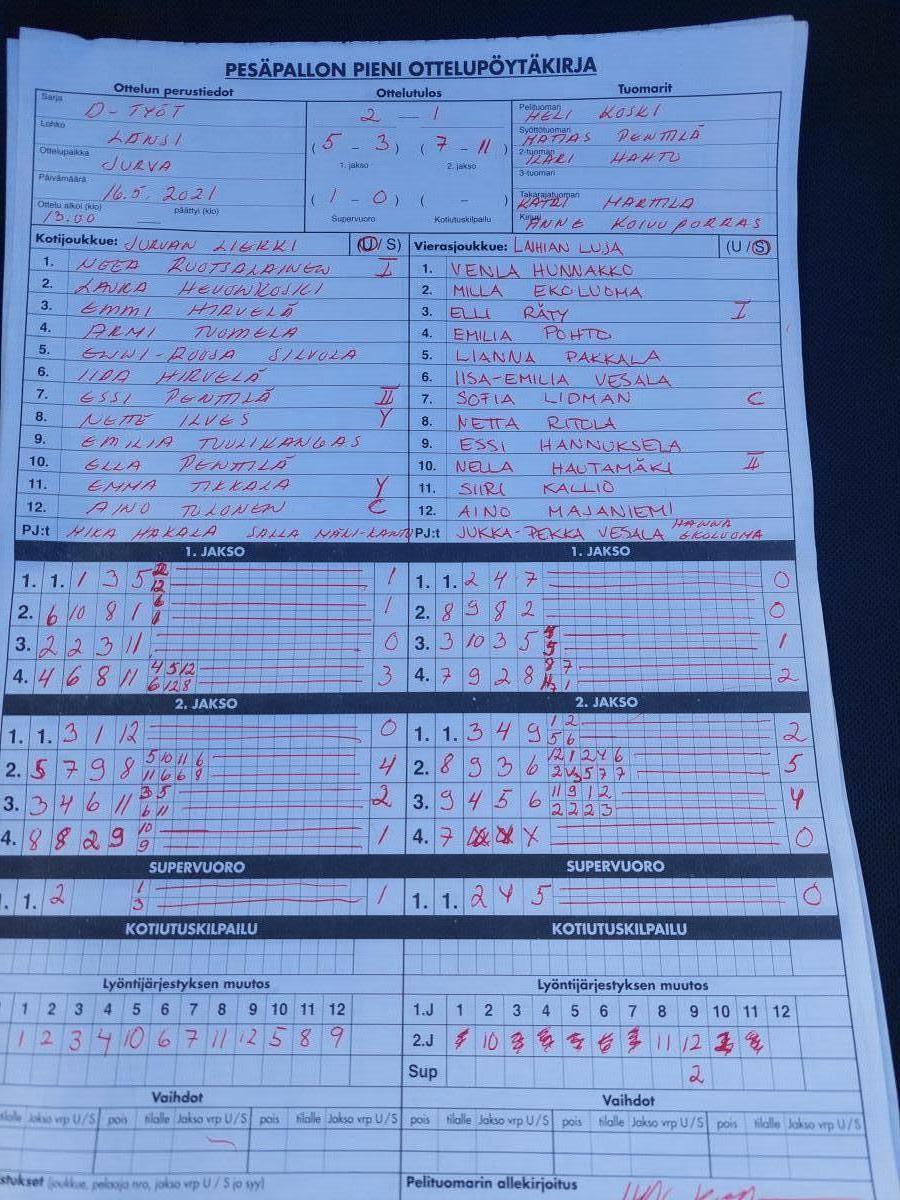 PESÄPALLON PIENI OTTELUPÖYTÄKIRJA
Ottelun perustiedot Ottelutulos Tuomarit
Sarja D-TYÖT
Lohko LÄNSI
Ottelupaikka JURVA
Päivämäärä 16.5.2021
Ottelu alkoi (klo) 13.00 päättyi (klo)
2 - 1
(5 - 3) (7 - 11)
1. jakso 2. jakso
(1 - 0) ( - )
Supervuoro Kotiutuskilpailu
Pelituomari HELI KOSKI
Syöttötuomari MATIAS PENTTILÄ
2-tuomari ILARI HAHTO
3-tuomari
Takarajatuomari KATRI HARTTLA
Kirjuri ANNE KOIVUPORRAS
Kotijoukkue: JURVAN LIEKKI (U / S) Vierasjoukkue: LAIHIAN LUJA (U / S)
1. NEEA RUOTSALAINEN I 1. VENLA HUNNAKKO
2. LAURA HEVONKOSKI 2. MILLA EKOLUOMA
3. EMMI HIRVELÄ 3. ELLI RÄTY I
4. ARMI TUOMELA 4. EMILIA POHTO
5. ENNI-ROOSA SILVOLA 5. LIANNA PAKKALA
6. IIDA HIRVELÄ 6. IISA-EMILIA VESALA
7. ESSI PENTTILÄ II 7. SOFIA LIDMAN C
8. NETTE ILVES Y 8. NETTA RITOLA
9. EMILIA TUULIKANGAS 9. ESSI HANNUKSELA
10. ELLA PENTTILÄ 10. NELLA HAUTAMÄKI II
11. EMMA TIKKALA Y 11. SIIRI KALLIO
12. AINO TULONEN C 12. AINO MAJANIEMI
PJ:t MIKA HAKALA SALLA PJ:t JUKKA-PEKKA VESALA HANNA EKOLUOMA
1. JAKSO 1. JAKSO
1. 1. 1 3 5 2 12 1 1. 1. 2 4 7 0
2. 6 10 8 1 6 1 2. 8 9 8 2 0
3. 2 2 3 11 0 3. 3 10 3 5 4 5 1
4. 4 6 8 11 4 5 12 6 12 8 3 4. 7 9 2 8 8 7 1 2
2. JAKSO 2. JAKSO
1. 1. 3 1 12 0 1. 1. 3 4 9 1 2 5 6 2
2. 5 7 9 8 5 10 11 6 11 6 6 8 4 2. 8 9 3 6 12 1 2 4 6 5
3. 3 4 6 11 3 5 6 11 2 3. 9 4 5 6 11 9 1 2 2 2 2 3 4
4. 8 8 2 9 10 9 1 4. 7 X 0
SUPERVUORO SUPERVUORO
1. 2 1 3 1 1. 1. 2 4 5 0
KOTIUTUSKILPAILU KOTIUTUSKILPAILU
Lyöntijärjestyksen muutos Lyöntijärjestyksen muutos
1 2 3 4 5 6 7 8 9 10 11 12 1.J 1 2 3 4 5 6 7 8 9 10 11 12
1 2 3 4 10 6 7 11 12 5 8 9 2.J 10 11 12
Sup 2
Vaihdot Vaihdot
tilalle Jakso vrp U/S pois tilalle Jakso vrp U/S pois tilalle Jakso vrp U/S pois tilalle Jakso vrp U/S pois tilalle Jakso vrp U/S pois tilalle Jakso vrp U/S
(joukkue, pelaaja nro, jakso vrp U / S ja syy) Pelituomarin allekirjoitus